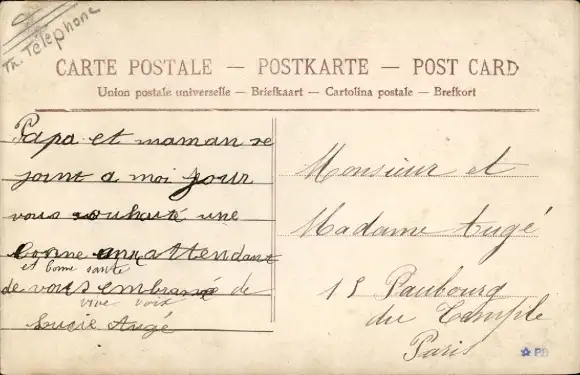 Th. Téléphone
CARTE POSTALE — POSTKARTE — POST CARD
Union postale universelle — Briefkaart — Cartolina postale — Brefkort
Papa et maman se
joint a moi pour
vous souhaité une
bonne attendant
et bonne santé
de vous embrassé de
vive voix
Lucie Augé
Monsieur et
Madame Augé
Faubourg
du Temple
Paris
PD